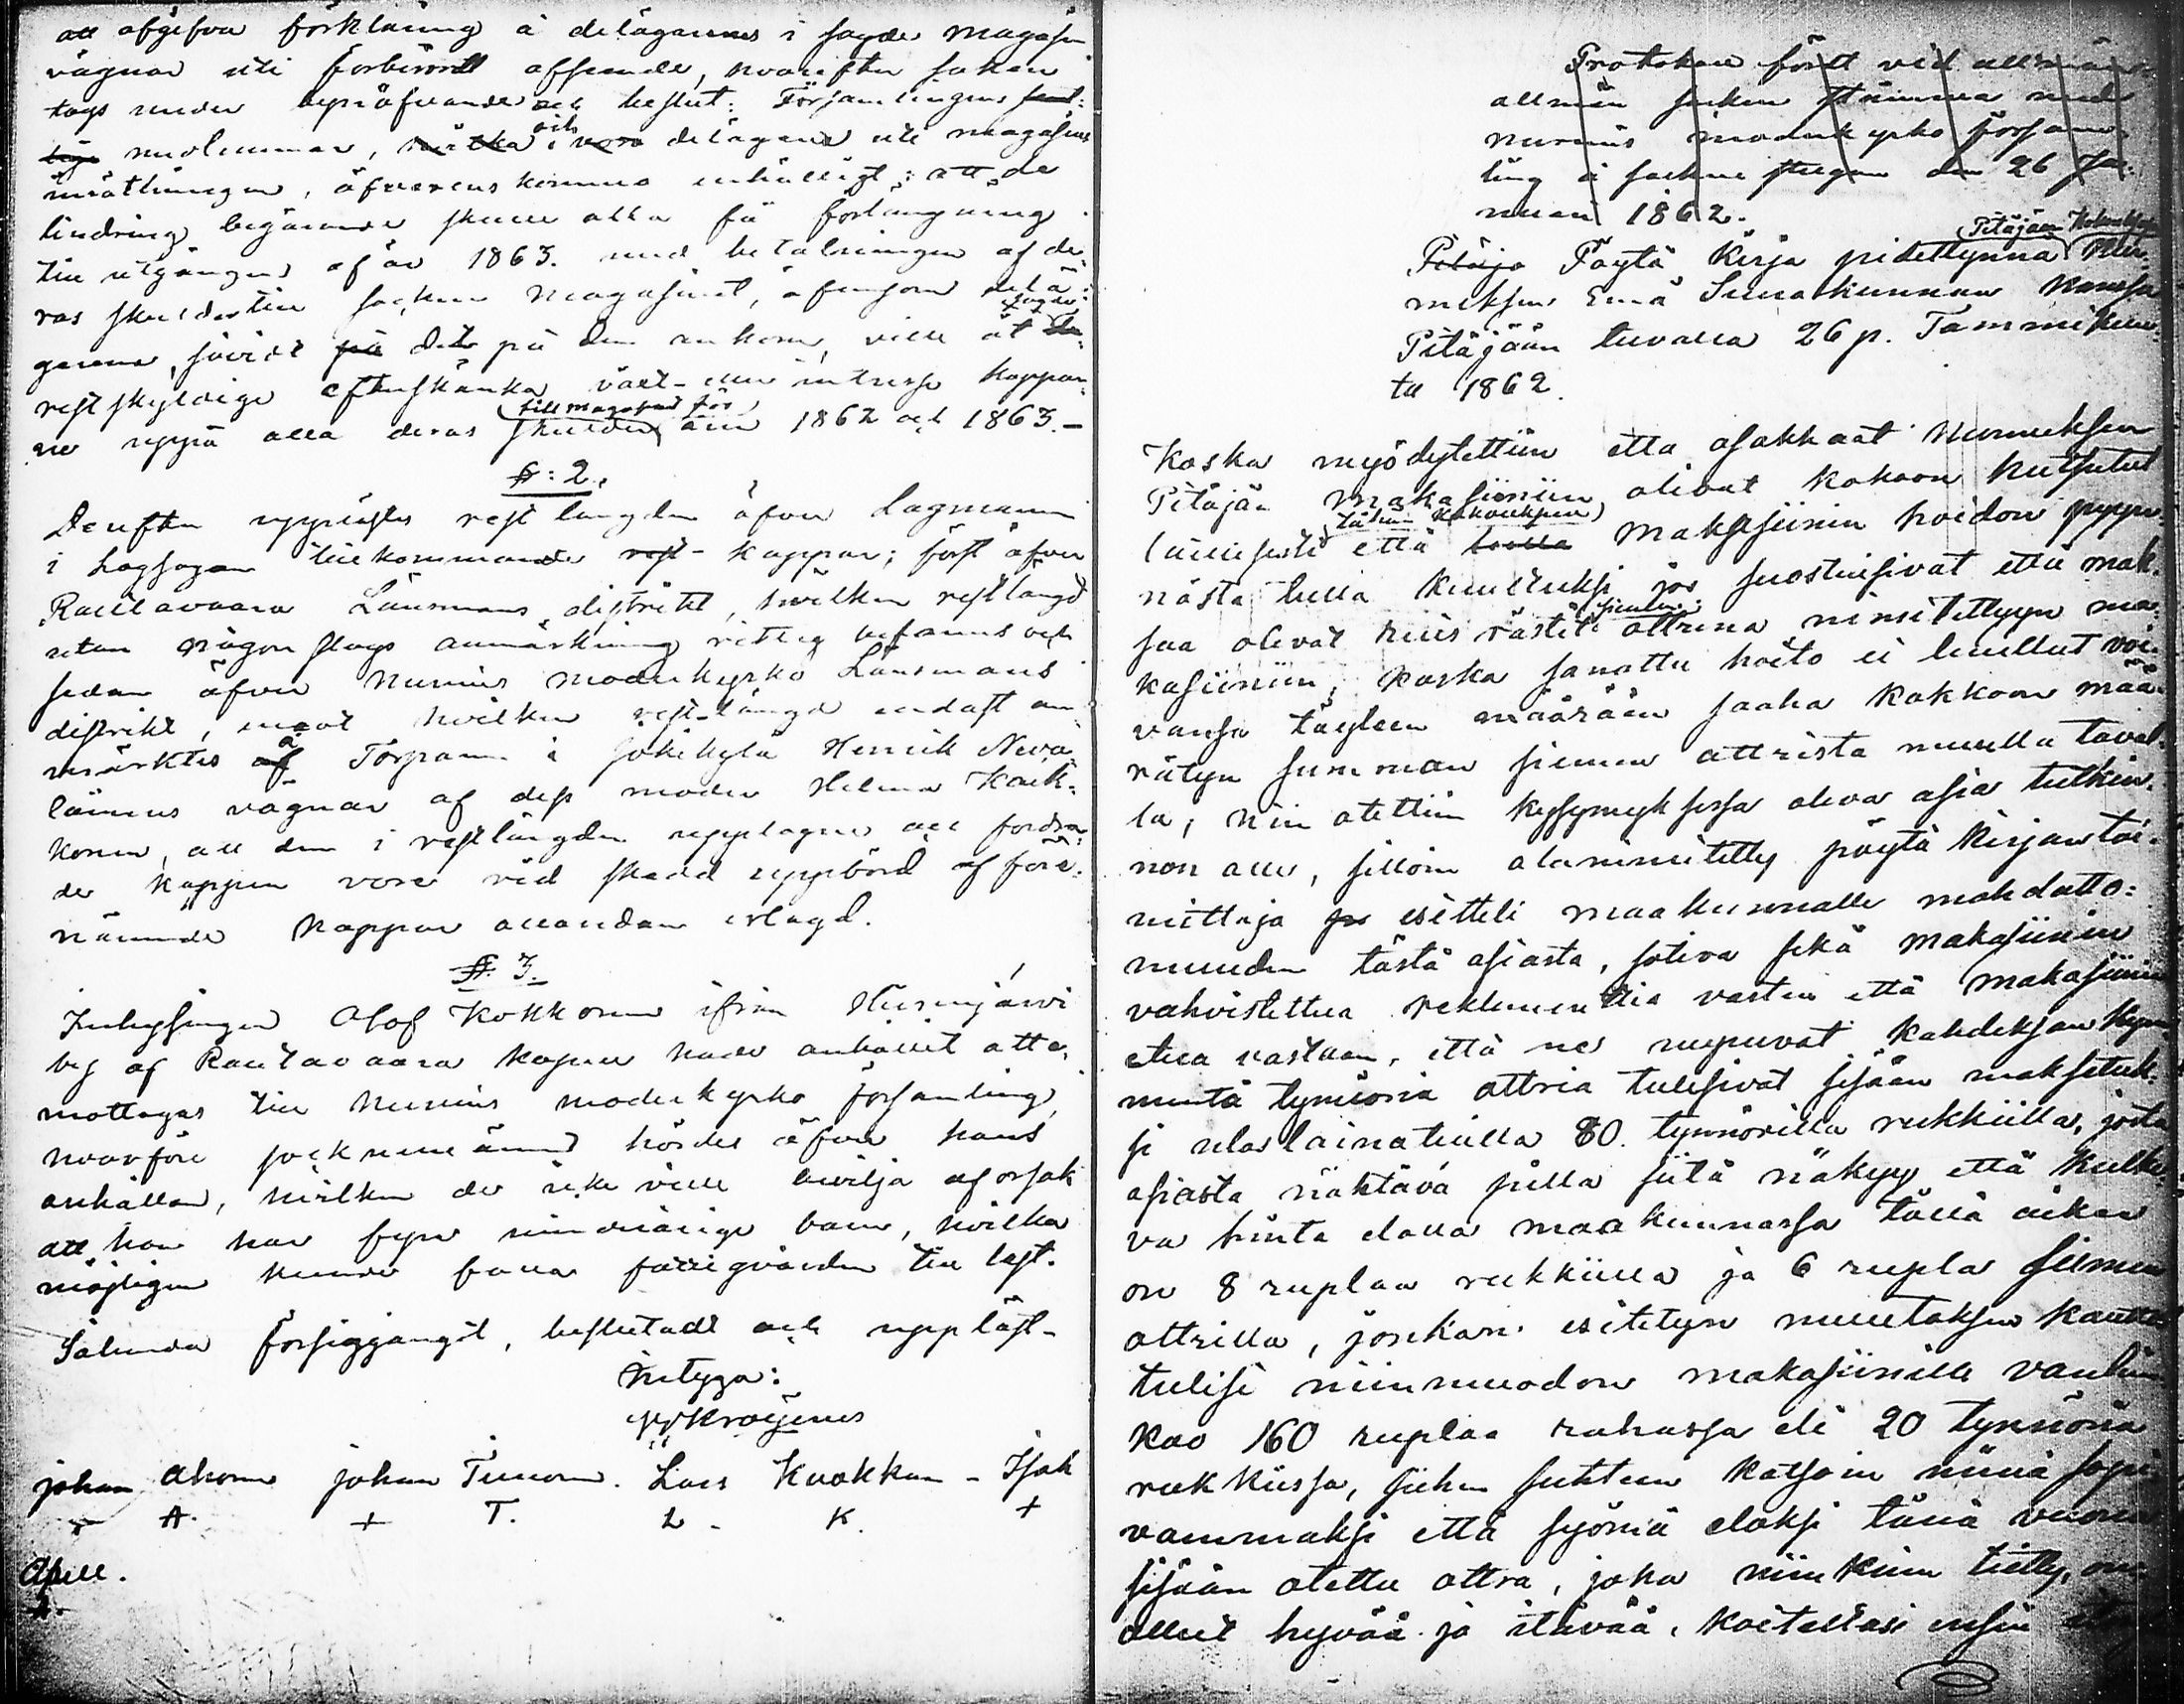 att afgifva förklaring å delägarnes i sagde magasin
vägnar uti förberörde afseende, hvarefter saken
togs under öfverläggande och beslut: Församlingens
medlemmar, och delägare uti magasins
inrättningen, öfverenskommo enhälligt: att de
lindring begärande skulle alla få förlängning
till utgången af år 1863. med betalningen af de-
ras skulder till sockne magasinet, äfvensom delä-
garena, såvidt på det på dem ankom, ville åt sagde
restskyldige efterskänka växt- eller intresse kappar-
ne uppå alla deras skulder till magasinet för åren 1862 och 1863.-
§: 2.
Derefter upplästes restlängden öfver Lagmans
i Lagsagan tillkommande rest-kappar; först öfver
Rautavaara Länsmans distrikt, hvilken restlängd
utan någon slags anmärkning riktig befanns och
sedan öfver Nurmis moderkyrko Länsmans
distrikt, emot hvilken rest-längd endast an-
märktes å Torparen i Jokikylä Henrik Neva-
lainens vägnar af dess moder Helena Kaik-
konen, att den i restlängden upptagne och fordra-
de kappen vore vid skedd uppbörd af före-
nämnde kappar allaredan erlagd.
§. 3.
Inhysingen Olof Kokkonen ifrån Hiirenjärvi
by af Rautavaara kapell hade anhållit att e-
mottagas till Nurmis moderkyrko församling,
hvarföre sockne männer hördes öfver hans
anhållan, hvilken de icke ville bevilja af orsak
att han har fyra minderåriga barn, hvilka
möjligen kunde falla fattigvården till last.
Sålunda försiggånget, beslutadt och uppläst-
Intyga:
johan Ahonen johan Timonen. Lars Kuokkanen - Isak
+ A. + T. L - K. +
A.
Protokoll fördt vid allmän
allmän socken stämma med
Nurmis moderkyrko försam-
ling i sockne stugan den 26 Ja-
nuari 1862.
Pitäjä Pöytä Kirja pidettynnä Pitäjään Kokouksessa Nur-
meksen Emä Seurakunnan kanssa
Pitäjään tuvalla 26 p. Tammikuu-
ta 1862.
Koska myödytettiin etta osakkaat Nurmeksen
Pitäjän makasiiniin olivat kokoon kutsutut
laillisesti että tähän kokoukseen makasiinin hoidon
nästä tulla kuulluksi jos suostuisivat että mak-
saa olevat riiis rästit siemen ottrina nimitettyyn ma-
kasiiniin, koska sanottu hoito ei luullut voi-
vansa täyteen määrään saaha kokkoon mää-
rätyn summan siemen ottrista muulla taval-
la; niin otettiin kysymyksessa oleva asia tutkin-
non alle, silloin alanimitetty pöytä kirjan toi-
mittaja esitteli maakunnalle mahdotto-
muuden tästä asiasta, jotka sekä makasiinin
vahvistettua reklementtia vasten että makasiinin
etua vastaan, että ne rupuvat kahdeksankym-
mentä tynnöriä ottria tulisivat sisään maksetuk-
si uloslainatuilla 80. tynnörillä rukkiilla, josta
asiasta nähtävä pitää siitä näkyy että kulke-
va hinta elolla maakunnassa tällä aikaa
on 8 ruplaa rukkiilla ja 6 rupla siemen
ottrilla, jonkan esitetyn muutoksen kautta
tulisi niinmuodon makasiinille vahin-
koo 160 ruplaa rahassa eli 20 tynnöriä
rukkiissa, siihen suhteen katsoin minä sopi-
vammaksi että syömä eloksi tänä vuonna
sisään otettu ottra, joka niin kuin tietty, on
ollut hyvää ja itävää, koitellasi ensin